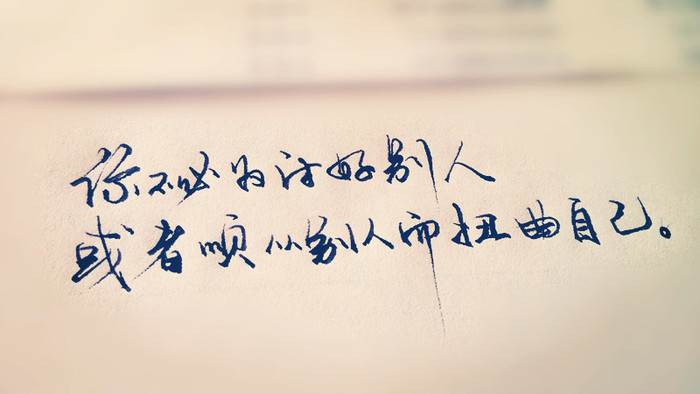 你不必为讨好别人
或者顺从别人而扭曲自己。